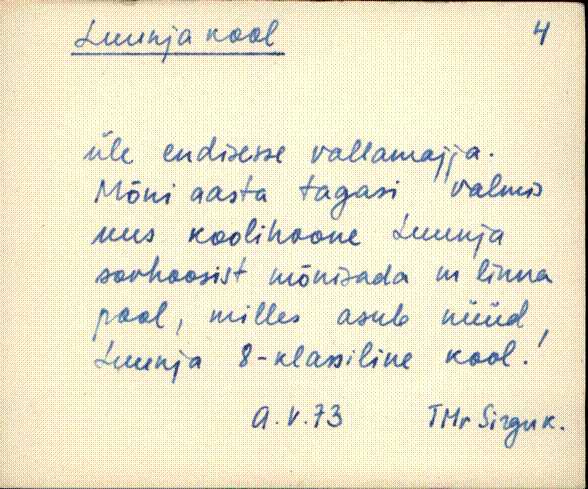 Luunja kool 4
üle endisesse vallamajja.
Mõni aasta tagasi valmis
uus koolihoone Luunja
sovhoosist mõnisada m linna
pool, milles asub nüüd
Luunja 8-klassiline kool.!
A.V.73 TMr Sirguk.